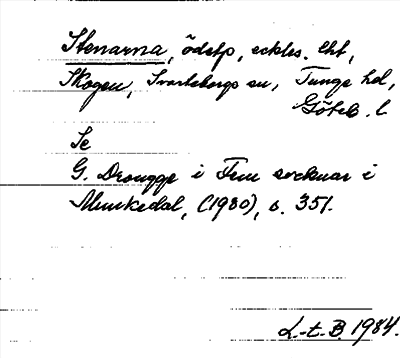 Stenarna, ödetp, eckles. lht,
Skogen, Svarteborgs sn, Tunge hd,
Göteb. l
Se
G. Drougge i Fem socknar i
Munkedal, (1980), s. 351.
L-t. B. 1984.